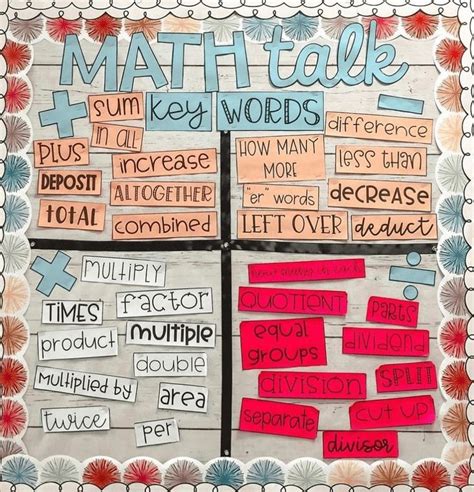 MATH talk
KEY WORDS
sum
in all
PLUS
increase
DEPOSIT
ALTOGETHER
TOTAL
combined
difference
HOW MANY MORE
less than
"er" words
decrease
LEFT OVER
deduct
MULTIPLY
TIMES
factor
product
multiple
double
multiplied by
area
twice
per
how many in each
QUOTIENT
PARTS
equal groups
dividend
division
SPLIT
separate
CUT UP
divisor